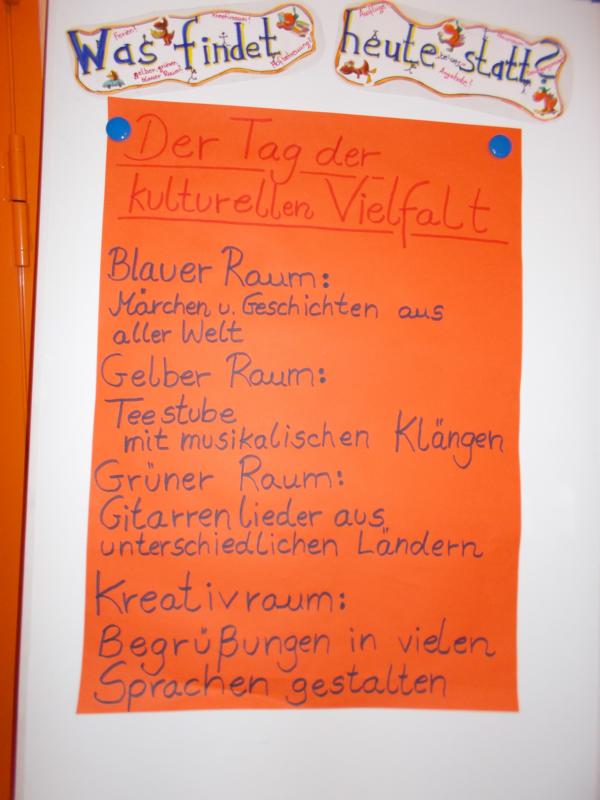 Was findet heute statt?
Ferien!
Gelber, grüner,
blauer Raum!
Ausflüge!
Angebote!
Der Tag der
kulturellen Vielfalt
Blauer Raum:
Märchen u. Geschichten aus
aller Welt
Gelber Raum:
Teestube
mit musikalischen Klängen
Grüner Raum:
Gitarrenlieder aus
unterschiedlichen Ländern
Kreativraum:
Begrüßungen in vielen
Sprachen gestalten